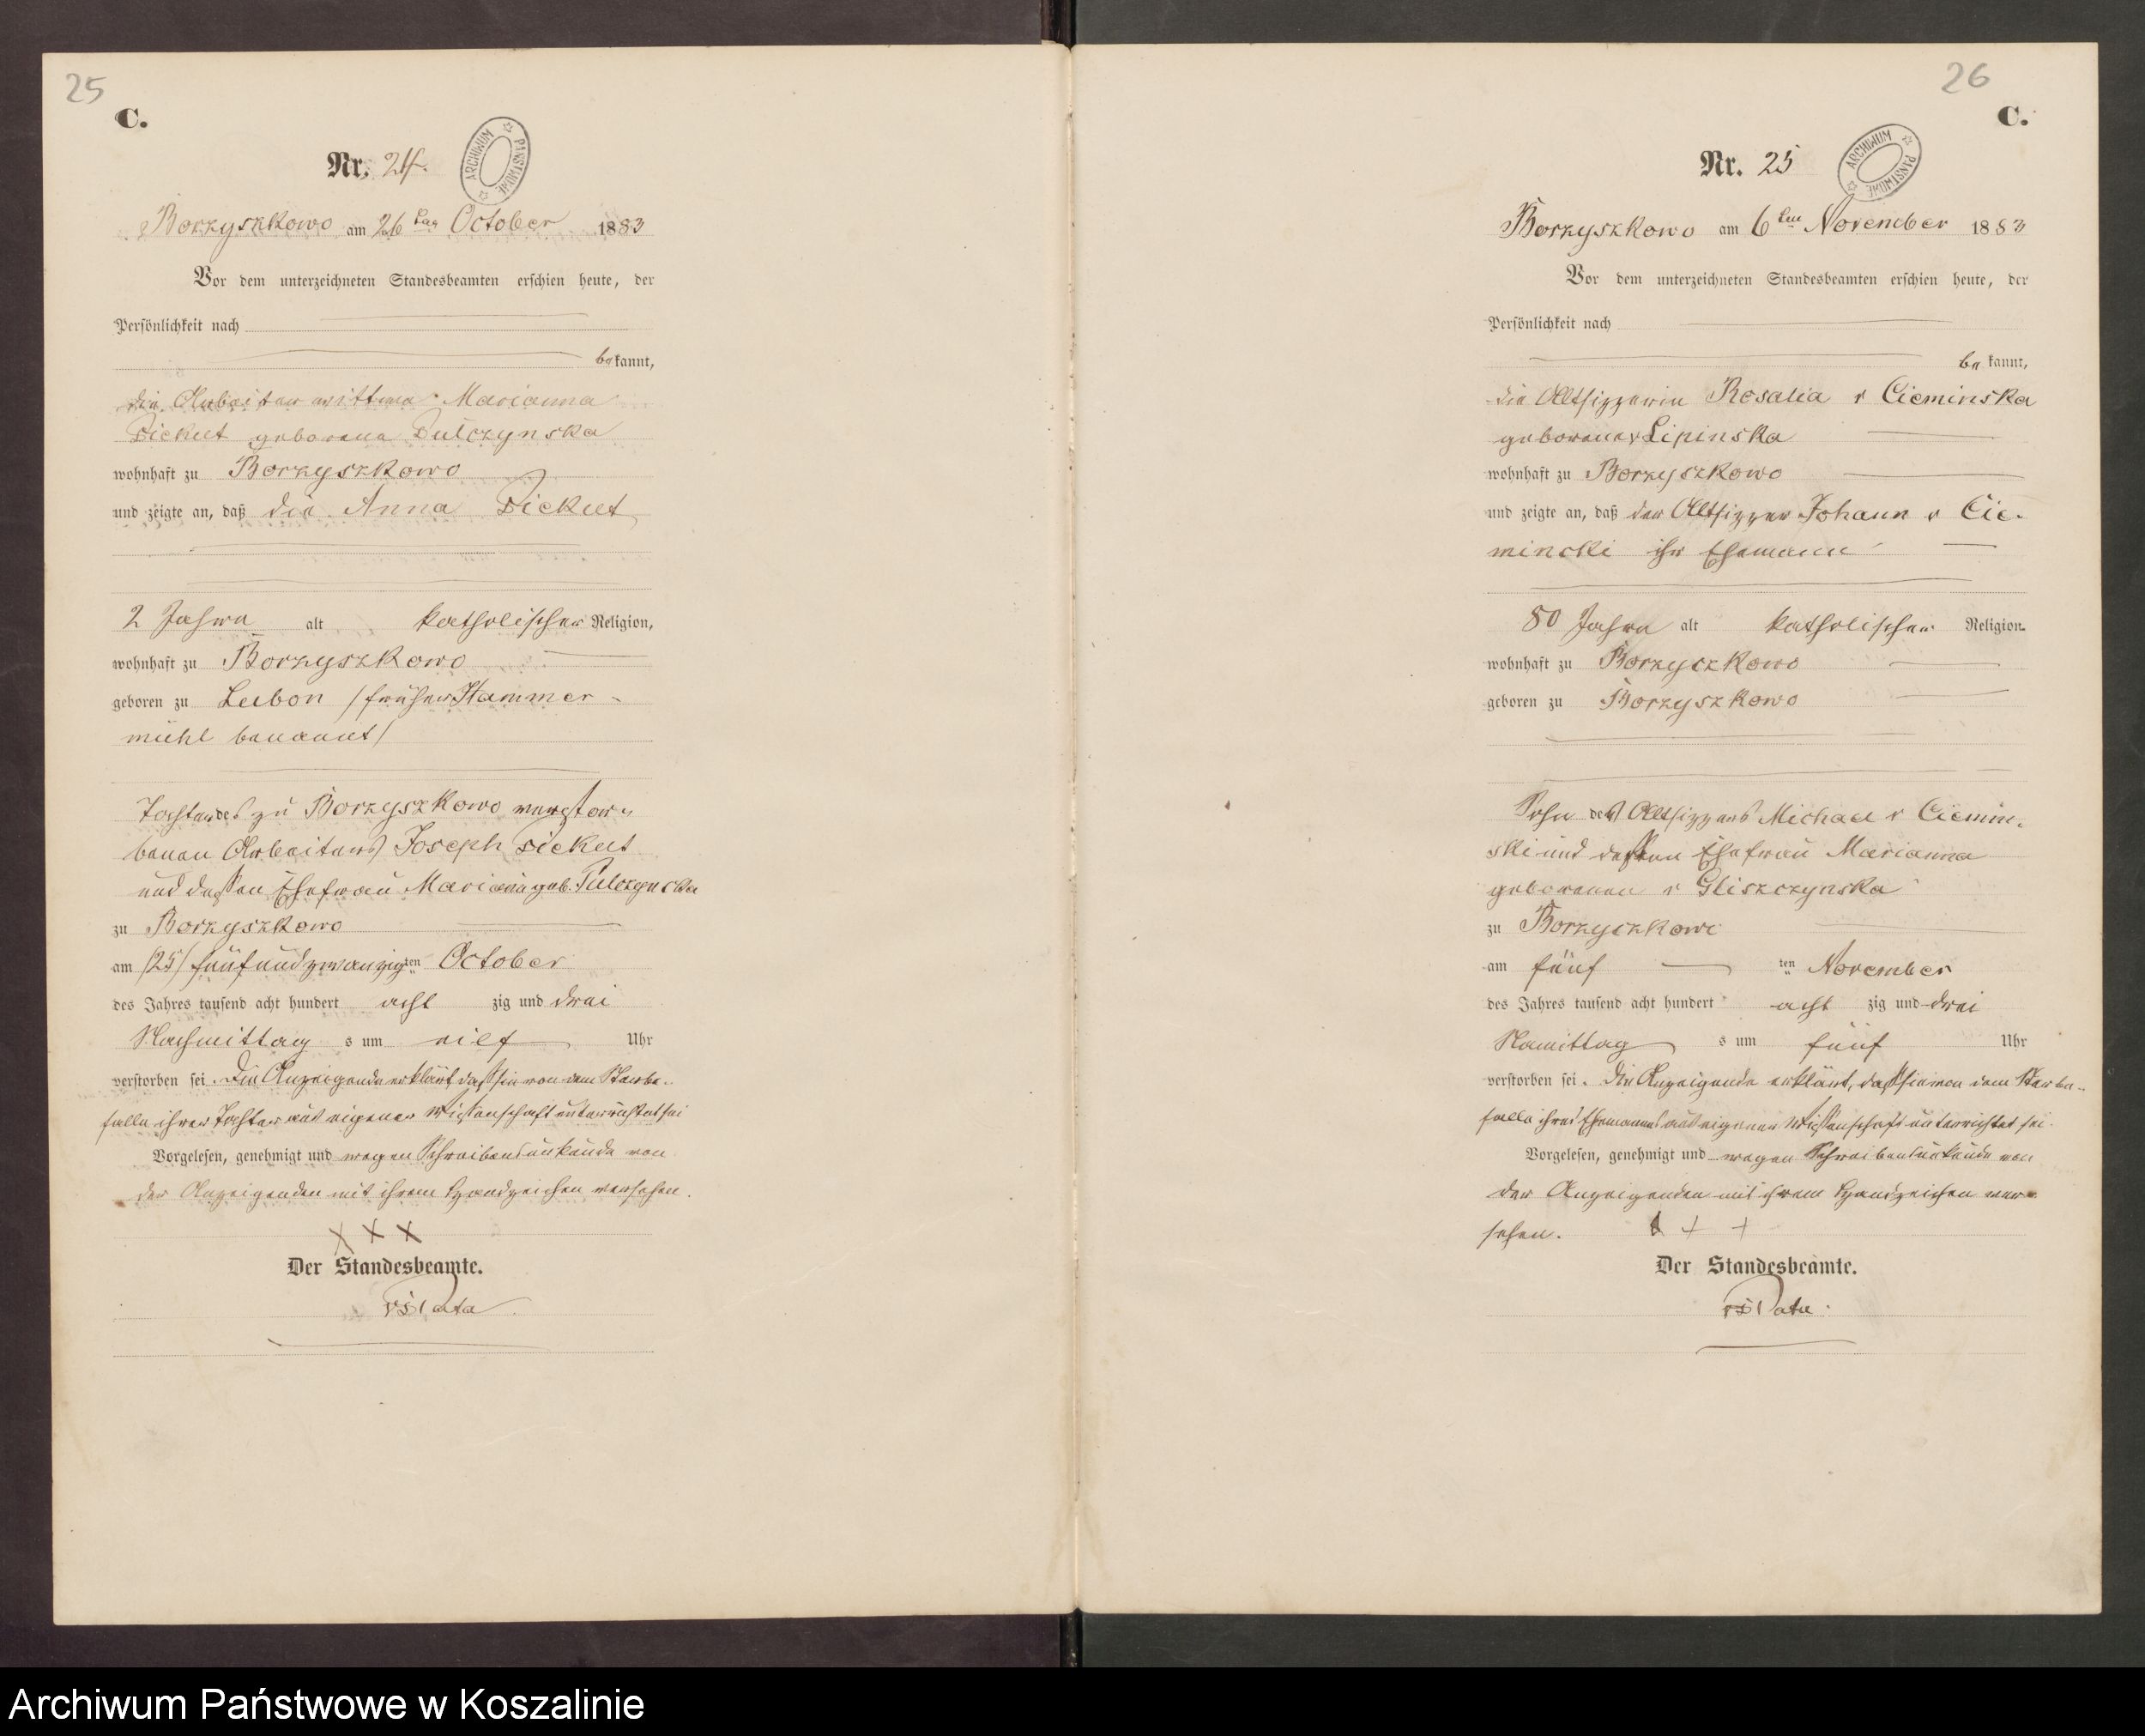 25
C.
Nr. 24.
ARCHIWUM PAŃSTWOWE
Borzyszkowo am 26ten October 1883
Vor dem unterzeichneten Standesbeamten erschien heute, der
Persönlichkeit nach
bekannt,
die Arbeiterwittwe Marianna
geborene Pulczynska
wohnhaft zu Borzyszkowo
und zeigte an, daß die Anna
2 Jahre alt katholischer Religion,
wohnhaft zu Borzyszkowo
geboren zu Lubon /früher Hammer-
mühl benannt/
Tochter des zu Borzyszkowo verstor-
benen Arbeiters Joseph
und dessen Ehefrau Mariana geb. Pulczynska
zu Borzyszkowo
am /25/ fünfundzwanzigten October
des Jahres tausend acht hundert acht zig und drei
Nachmittag s um eilf Uhr
verstorben sei. Die Anzeigende erklärt, daß sie von dem Sterbe-
falle ihrer Tochter aus eigener Wissenschaft unterrichtet sei
Vorgelesen, genehmigt und wegen Schreibensunkunde von
der Anzeigenden mit ihrem Handzeichen versehen.
x x x
Der Standesbeamte.
26
C.
Nr. 25
ARCHIWUM PAŃSTWOWE
Borzyszkowo am 6ten November 1883
Vor dem unterzeichneten Standesbeamten erschien heute, der
Persönlichkeit nach
be kannt,
die Altsitzerin Rosalia v Cieminska
geborene v Lipinska
wohnhaft zu Borzyszkowo
und zeigte an, daß der Altsitzer Johann v Cie-
minski ihr Ehemann
80 Jahre alt katholischer Religion
wohnhaft zu Borzyszkowo
geboren zu Borzyszkowo
Sohn des Altsitzers Michael v Ciemin-
ski und dessen Ehefrau Marianna
geborenen v Gliszczynska
zu Borzyszkowo
am fünf ten November
des Jahres tausend acht hundert acht zig und drei
Namittag s um fünf Uhr
verstorben sei. Die Anzeigende erklärt, daß sie von dem Sterbe-
falle ihres Ehemannes aus eigener Wissenschaft unterrichtet sei.
Vorgelesen, genehmigt und wegen Schreibensunkunde von
der Anzeigenden mit ihrem Handzeichen ver-
sehen. + + +
Der Standesbeamte.
Archiwum Państwowe w Koszalinie